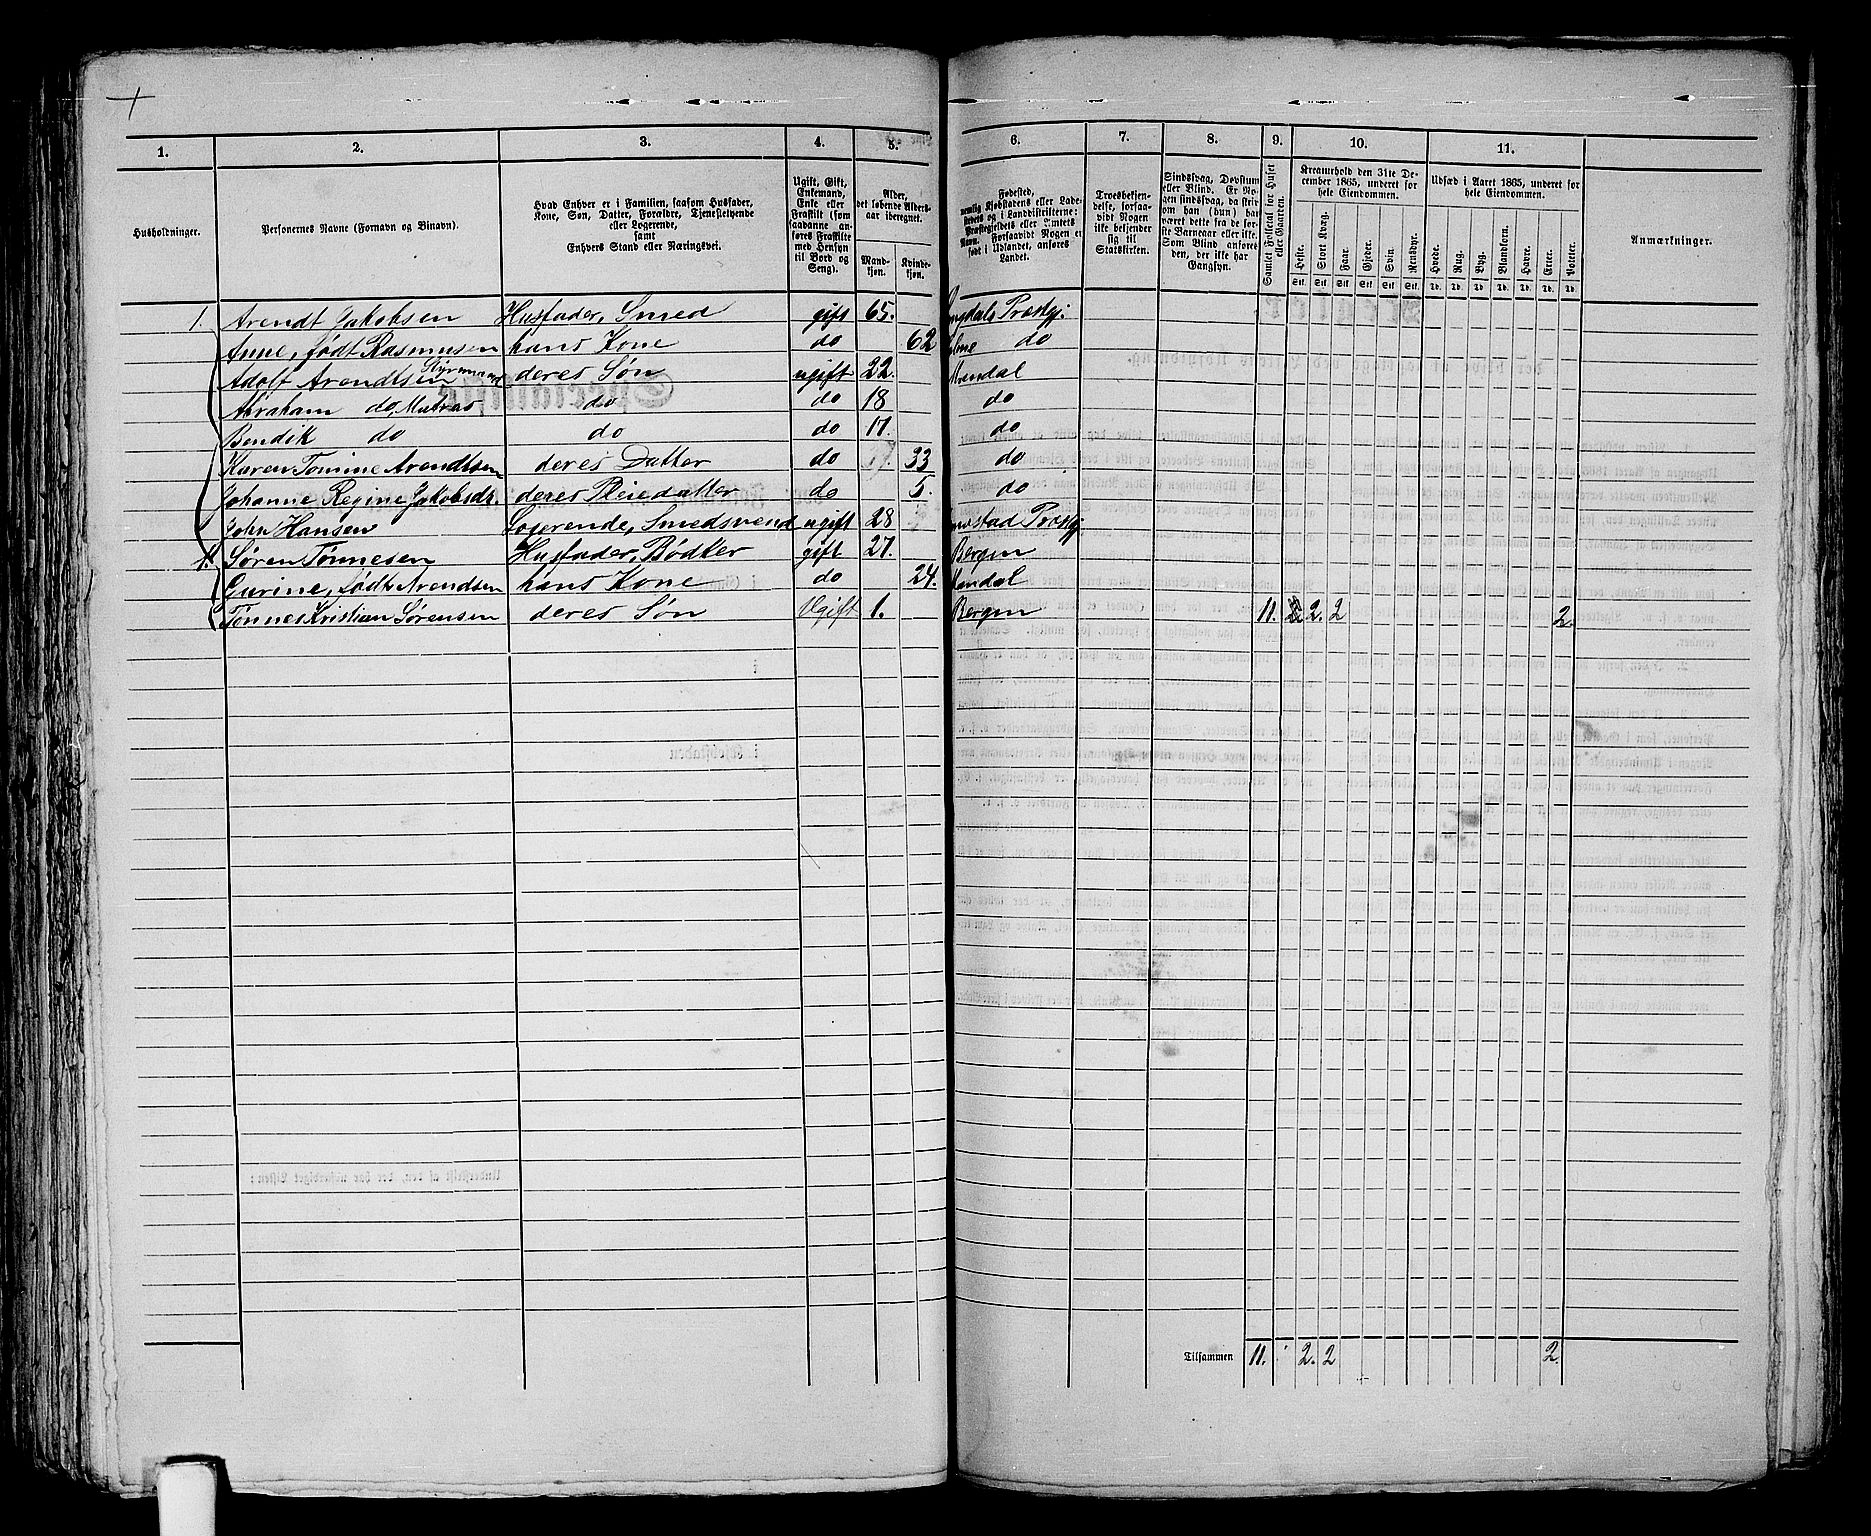 1. 2. 3. 4. 5. 6. 7. 8. 9. 10. 11.
Husholdninger.
Personernes Navne (Fornavn og Binavn).
Hvad Enhver er i Familien, saasom Husfader,
Kone, Søn, Datter, Forældre, Tjenestetyende
eller Logerende,
samt
Enhvers Stand eller Næringsvei.
Ugift, Gift,
Enkemand,
Enke eller
Fraskilt (som
saadanne an-
føres Fraskilte
med Hensyn
til Bord og
Seng).
Alder,
det løbende Alders-
aar iberegnet.
Mand-
kjøn.
Kvinde-
kjøn.
Fødested,
nemlig Kjøbstadens eller Lade-
stedets og i Landdistrikterne:
Præstegjeldets eller Amtets
Navn. Forsaavidt Nogen er
født i Udlandet, anføres
Landet.
Troesbekjen-
delse, forsaa-
vidt Nogen
ikke bekjender
sig til
Statskirken.
Sindssvag, Døvstum
eller Blind. Er No-
gen sindssvag, da striv
om han (hun) har
været dette fra de før-
ste Barneaar eller ikke.
Som Blind anføres
den, der ikke har
Gangsyn.
Samlet Folketal for Huset
eller Gaarden.
Kreaturhold den 31te De-
cember 1865, underet for
hele Eiendommen.
Heste. Stort Kvæg. Faar. Gjeder. Svin. Rensdyr.
Stk. Stk. Stk. Stk. Stk. Stk.
Udsæd i Aaret 1865, underet for
hele Eiendommen.
Hvede. Rug. Byg. Blandkorn. Havre. Erter. Poteter.
Td. Td. Td. Td. Td. Td. Td.
Anmærkninger.
1. Arendt Jakobsen Husfader, Smed gift 65. Præstgj:
Anne, født Rasmusen hans Kone do 62 do
Adolf Arendtsen Styrmand deres Søn ugift 22. Mandal
Abraham do, Matros do do 18 do
Bendik do do do 17. do
Karen Tomine Arendtsen deres Datter do 33 do
Johanne Regine Jakobsdr. deres Pleiedatter do 5. do
John Hansen Logerende, Smedsvend ugift 28 Præstgj
1. Søren Tønnesen Husfader, Bødker gift 27. Bergen
Gurine, født Arendsen hans Kone do 24. Mandal
Tønnes Kristian Sørensen deres Søn Ugift 1. Bergen 11. 2. 2 2.
Tilsammen 11. 2. 2 2.